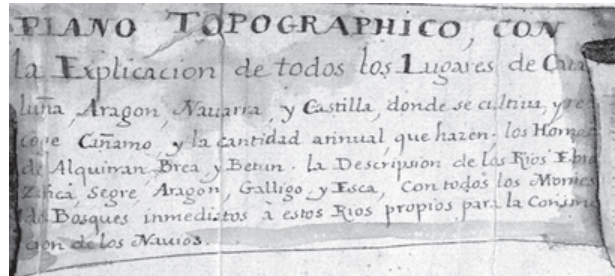 PLANO TOPOGRAPHICO, CON
la Explicacion de todos los Lugares de Cata
luña Aragon, Nauarra, y Castilla, donde se cultiua, y re
coge Cañamo, y la cantidad annual, que hazen; los Hornos
de Alquitran, Brea, y Betun. la Descripsion de los Rios Ebro
Zinca, Segre, Aragon, Galligo, y Esca, Con todos los Montes
de Bosques inmediatos à estos Rios propios para la Constru
cion de los Nauios.